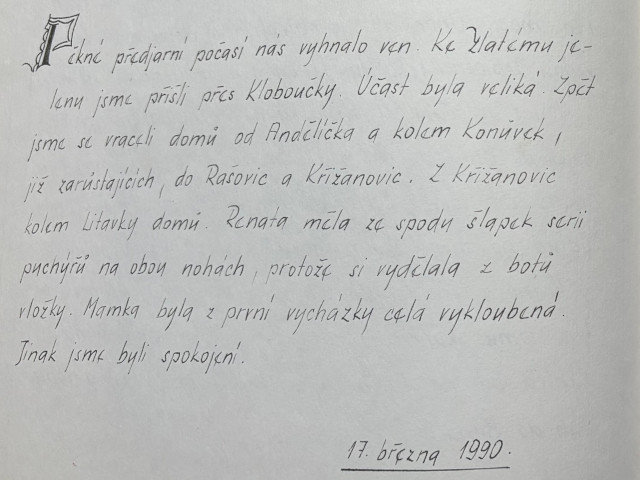 Pěkné předjarní počasí nás vyhnalo ven. Ke Zlatému je-
lenu jsme přišli přes Kloboučky. Účast byla veliká. Zpět
jsme se vraceli domů od Andělíčka a kolem Konůvek,
již zarůstajících, do Rašovic a Křižanovic. Z Křižanovic
kolem Litavky domů. Renata měla ze spodu šlapek sérii
puchýřů na obou nohách, protože si vydělala z botů
vložky. Mamka byla z první vycházky celá vykloubená.
Jinak jsme byli spokojení.
17. března 1990.